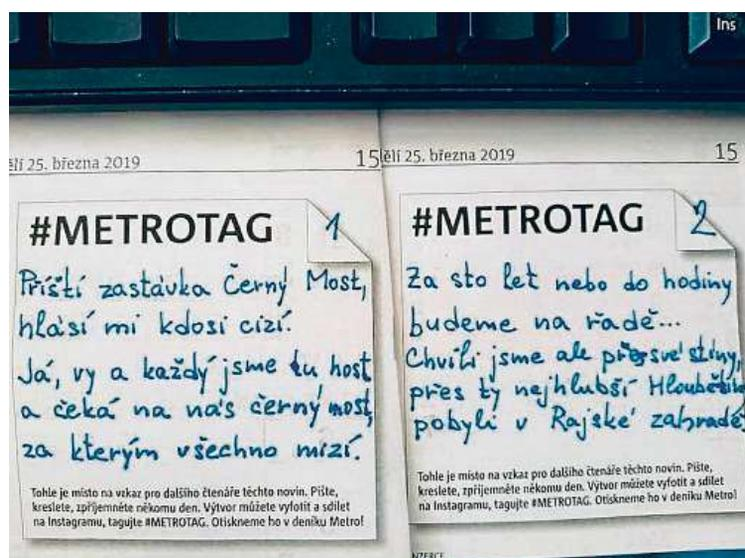 Ins
ělí 25. března 2019
15
#METROTAG
1
Příští zastávka Černý Most,
hlásí mi kdosi cizí.
Já, vy a každý jsme tu host
a čeká na nás černý most,
za kterým všechno mizí.
Tohle je místo na vzkaz pro dalšího čtenáře těchto novin. Pište,
kreslete, zpříjemněte někomu den. Výtvor můžete vyfotit a sdílet
na Instagramu, tagujte #METROTAG. Otiskneme ho v deníku Metro!
ělí 25. března 2019
15
#METROTAG
2
Za sto let nebo do hodiny
budeme na řadě...
Chvíli jsme ale přes své stíny,
přes ty nejhlubší Hloubětíny
pobyli v Rajské zahradě.
Tohle je místo na vzkaz pro dalšího čtenáře těchto novin. Pište,
kreslete, zpříjemněte někomu den. Výtvor můžete vyfotit a sdílet
na Instagramu, tagujte #METROTAG. Otiskneme ho v deníku Metro!
INZERCE